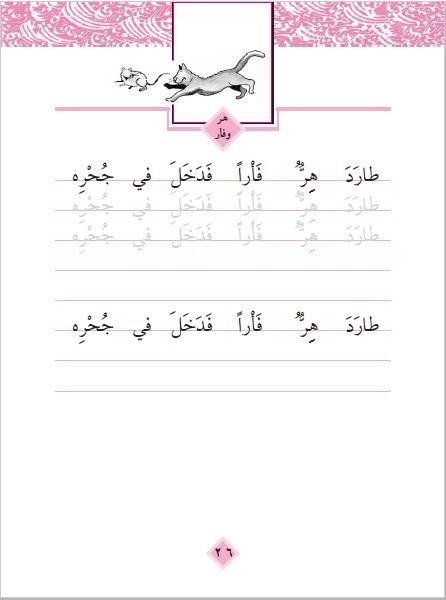 هر
وفار
طارَدَ هِرٌّ فَأْراً فَدَخَلَ في جُحْرِه
طارَدَ هِرٌّ فَأْراً فَدَخَلَ في جُحْرِه
طارَدَ هِرٌّ فَأْراً فَدَخَلَ في جُحْرِه
طارَدَ هِرٌّ فَأْراً فَدَخَلَ في جُحْرِه
٢٦